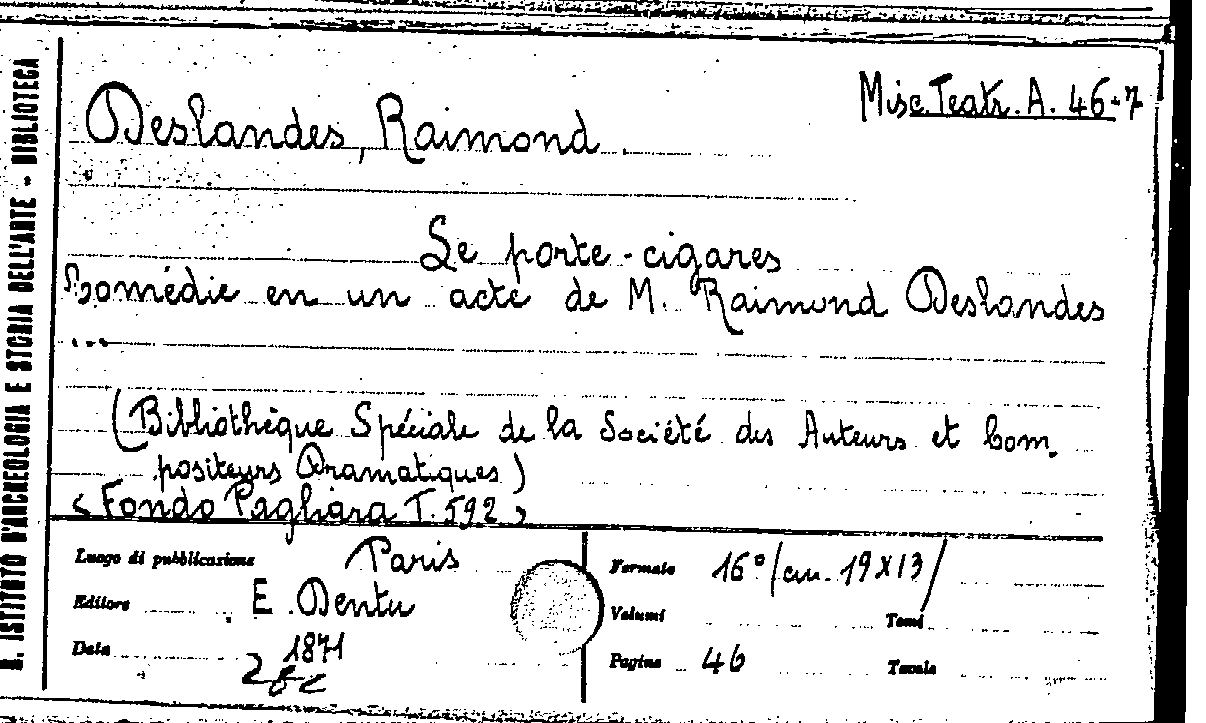 R. ISTITUTO D'ARCHEOLOGIA E STORIA DELL'ARTE - BIBLIOTECA
Misc. Teatr. A. 46-7
Deslandes, Raimond.
Le porte-cigares
Comédie en un acte de M. Raimond Deslandes
...
(Bibliothèque Spéciale de la Société des Auteurs et Com
positeurs Dramatiques)
<Fondo Pagliara T. 592>
Luogo di pubblicazione Paris
Editore E. Dentu
Data 1871
Formato 16°/cm. 19x13/
Volumi Tomi
Pagine 46 Tavole